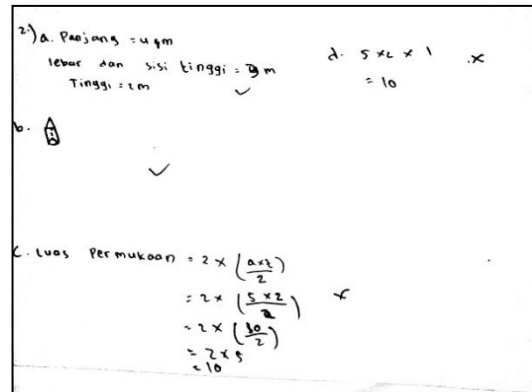 2.) a. Panjang = 4 m
lebar dan sisi tinggi = m
Tinggi = 2 m
b.
c. Luas Permukaan = 2 × (a×t/2)
= 2 × (5×2/2)
= 2 × (10/2)
= 2 × 5
= 10
d. 5 × 2 × 1
= 10